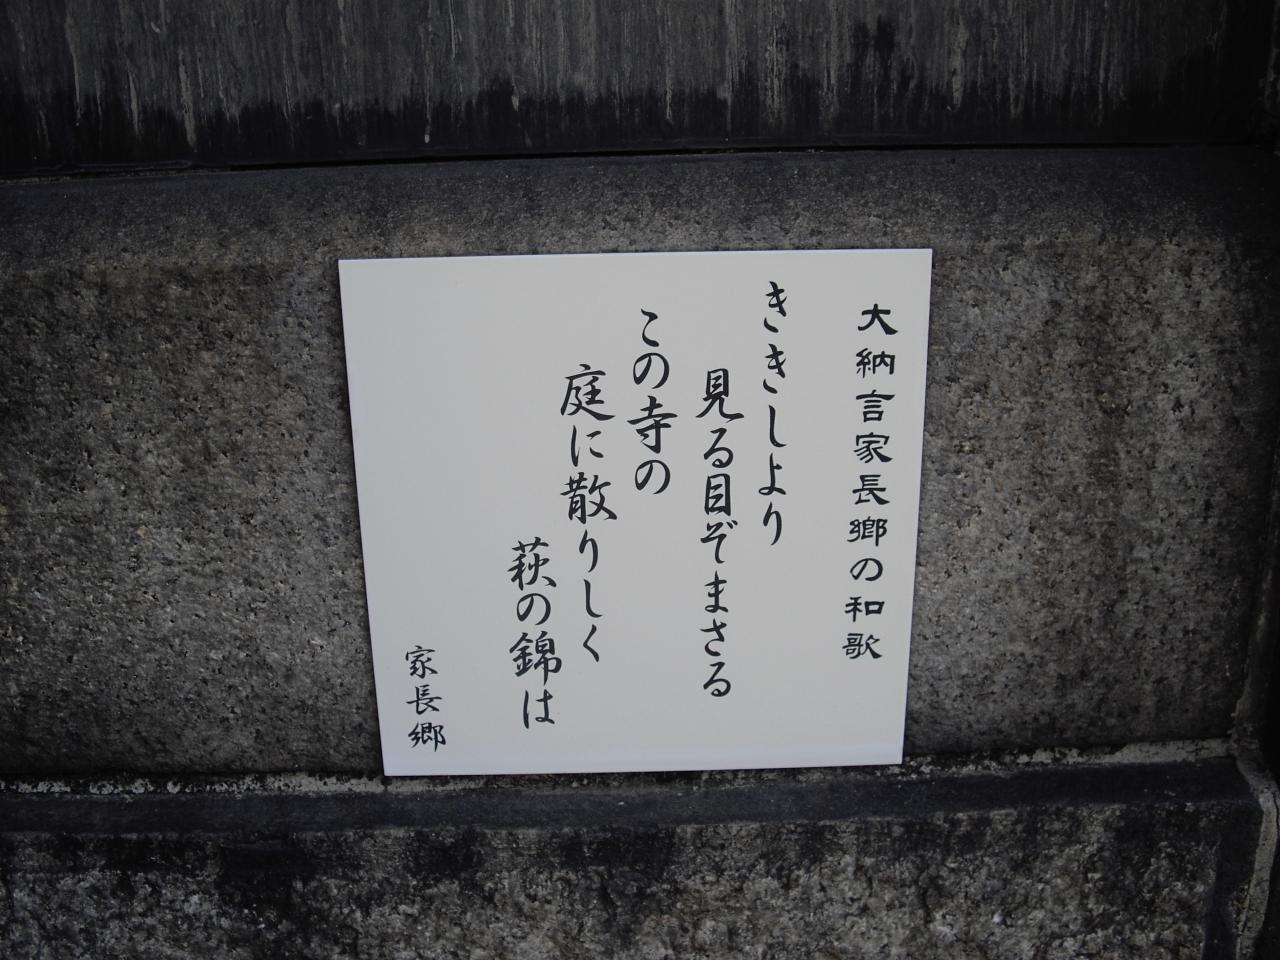 大納言家長郷の和歌
ききしより
見る目ぞまさる
この寺の
庭に散りしく
萩の錦は
家長郷